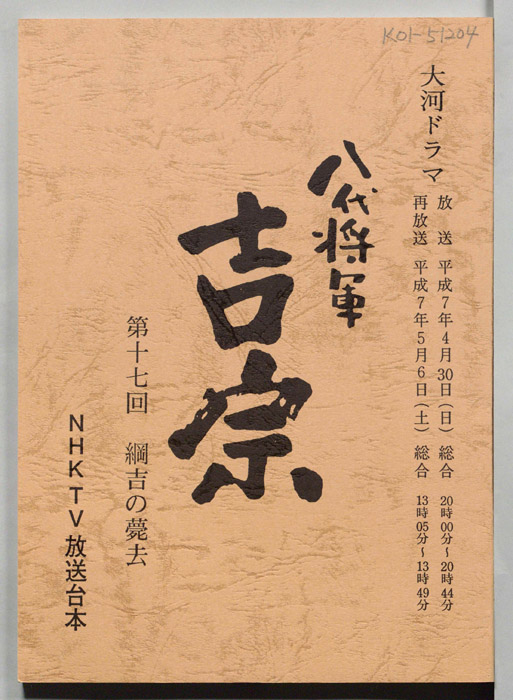 K01-51204
大河ドラマ
放　送　平成7年4月30日(日)　総合　20時00分～20時44分
再放送　平成7年5月6日(土)　総合　13時05分～13時49分
八代将軍
吉宗
第十七回　綱吉の薨去
NHK TV放送台本